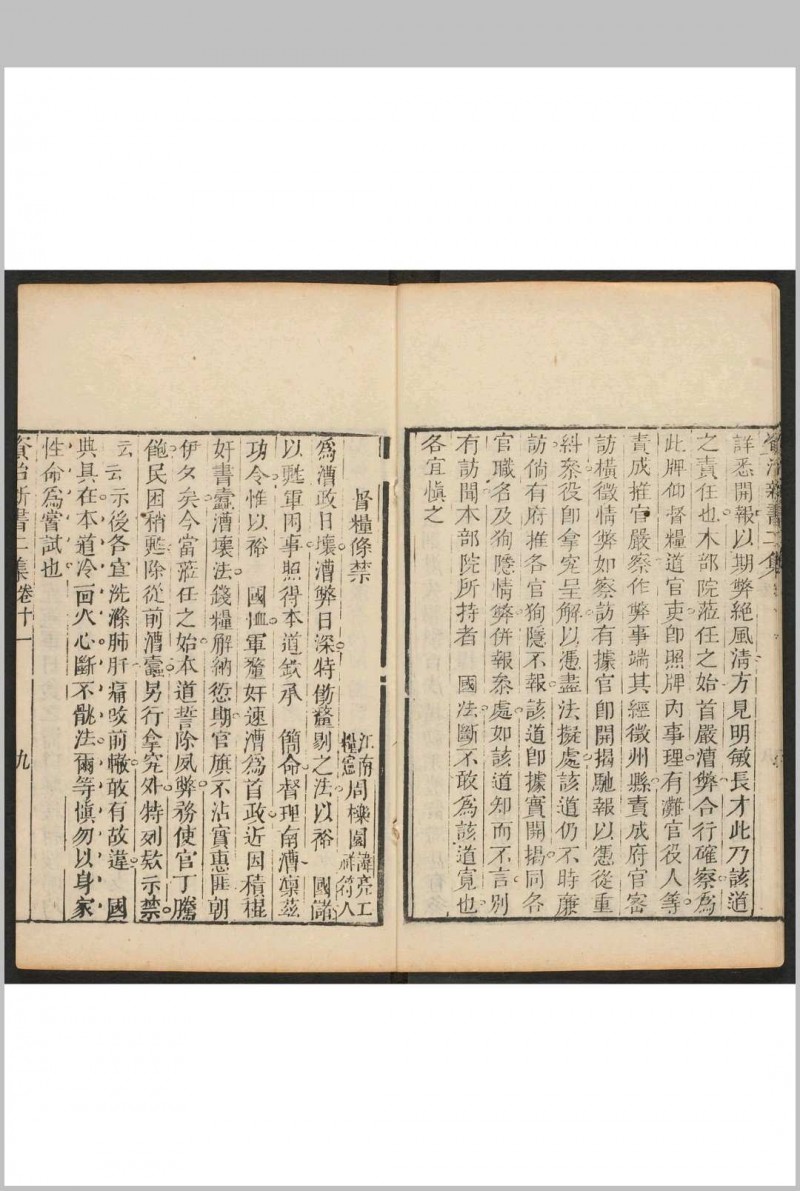 資治新書二集
詳悉開報以期弊絕風淸方見明敏長才此乃該道
之責任也本部院蒞任之始首嚴漕弊合行確察爲
此牌仰督糧道官吏卽照牌內事理有灕官役人等
責成推官嚴察作弊事端其經徵州縣責成府官審
訪橫徵情弊如察訪有據官卽開揭馳報以憑從重
糾叅役卽拿究呈解以憑盡法擬處該道仍不時廉
訪倘有府推各官狥隱不報該道卽據實開揭同各
官職名及狥隱情弊併報叅處如該道知而不言別
有訪聞本部院所持者　國法斷不敢爲該道寬也
各宜愼之
督糧條禁
江南糧憲周櫟園諱亮工祥符人
爲漕政日壞漕弊日深特倣釐剔之法以裕　國儲
以甦軍困事照得本道欽承　簡命督理南漕凛茲
功令惟以裕　國恤軍釐奸速漕爲首政近因積棍
奸書蠧漕壞法錢糧解納愆期官旗不沾實惠匪朝
伊夕矣今當蒞任之始本道誓除夙弊務使官丁騰
飽民困稍甦除從前漕蠧另行拿究外特列欵示禁
云云示後各宜洗滌肺肝痛改前轍敢有故違　國
典具在本道冷面火心斷不骩法爾等愼勿以身家
性命爲嘗試也
資治新書二集卷十一　九